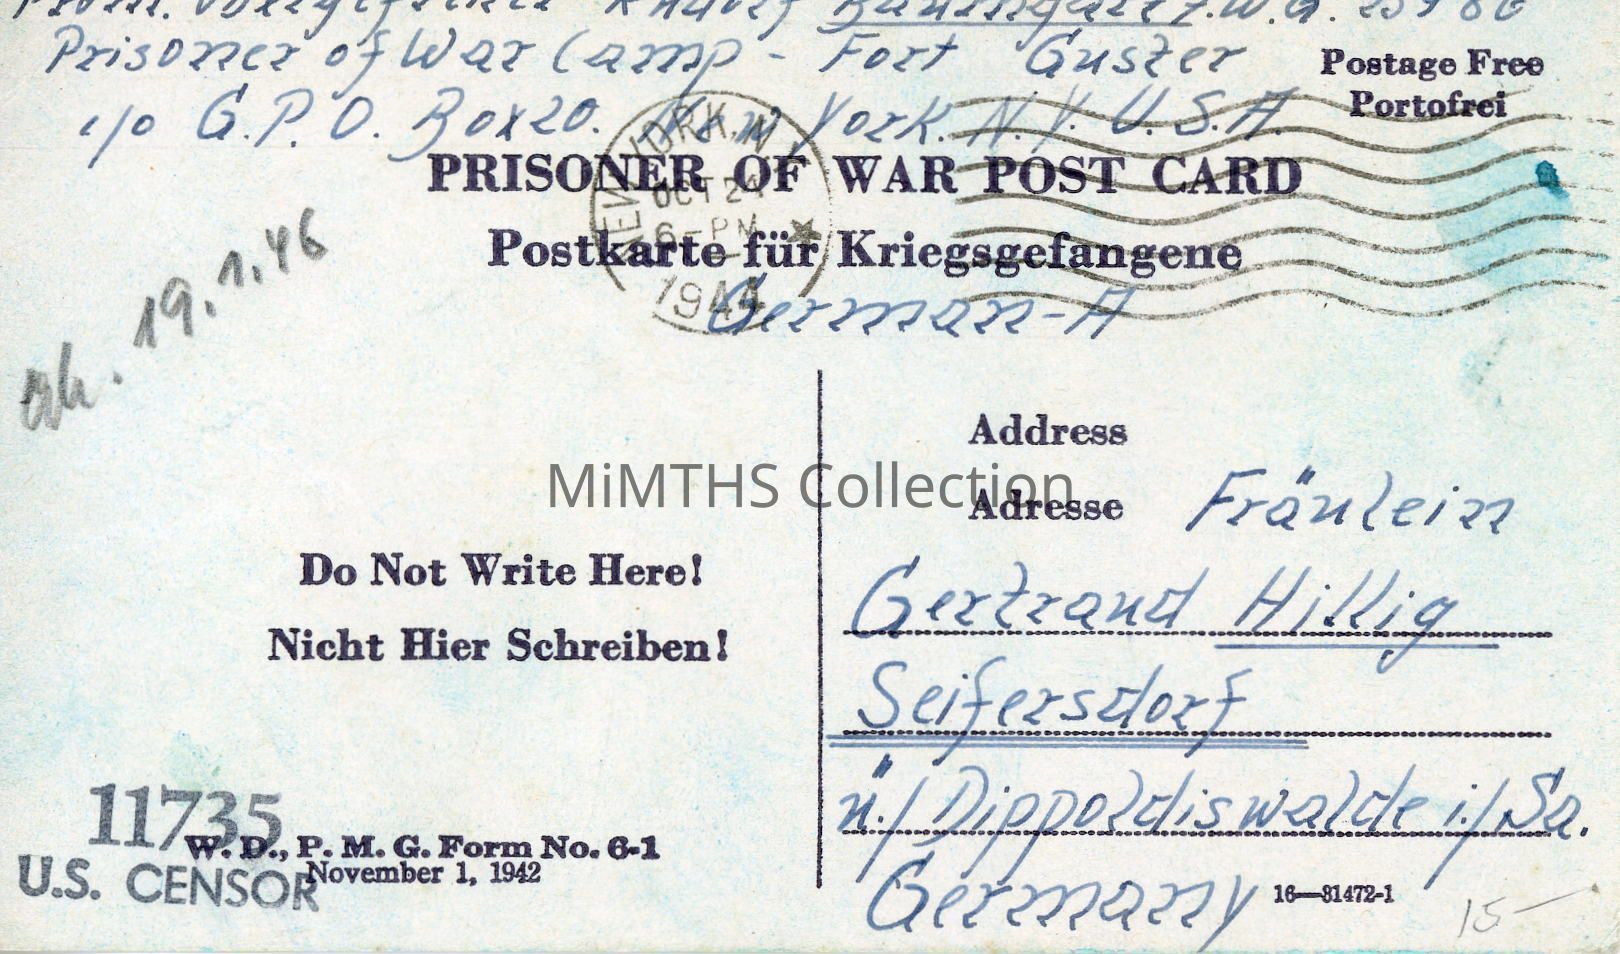 Prisoner of War Camp - Fort Custer
c/o G.P.O. Box 20. New York. N.Y. U.S.A.
Postage Free
Portofrei
PRISONER OF WAR POST CARD
NEW YORK, N.Y.
OCT 24
6-PM
1944
Postkarte für Kriegsgefangene
German-A
19.1.46
Address
MiMTHS Collection
Adresse Fräulein
Do Not Write Here!
Gertraud Hillig
Nicht Hier Schreiben!
Seifersdorf
ü./Dippoldiswalde i./Sa.
Germany
11735
W. D., P. M. G. Form No. 6-1
November 1, 1942
U.S. CENSOR
16—81472-1
15-